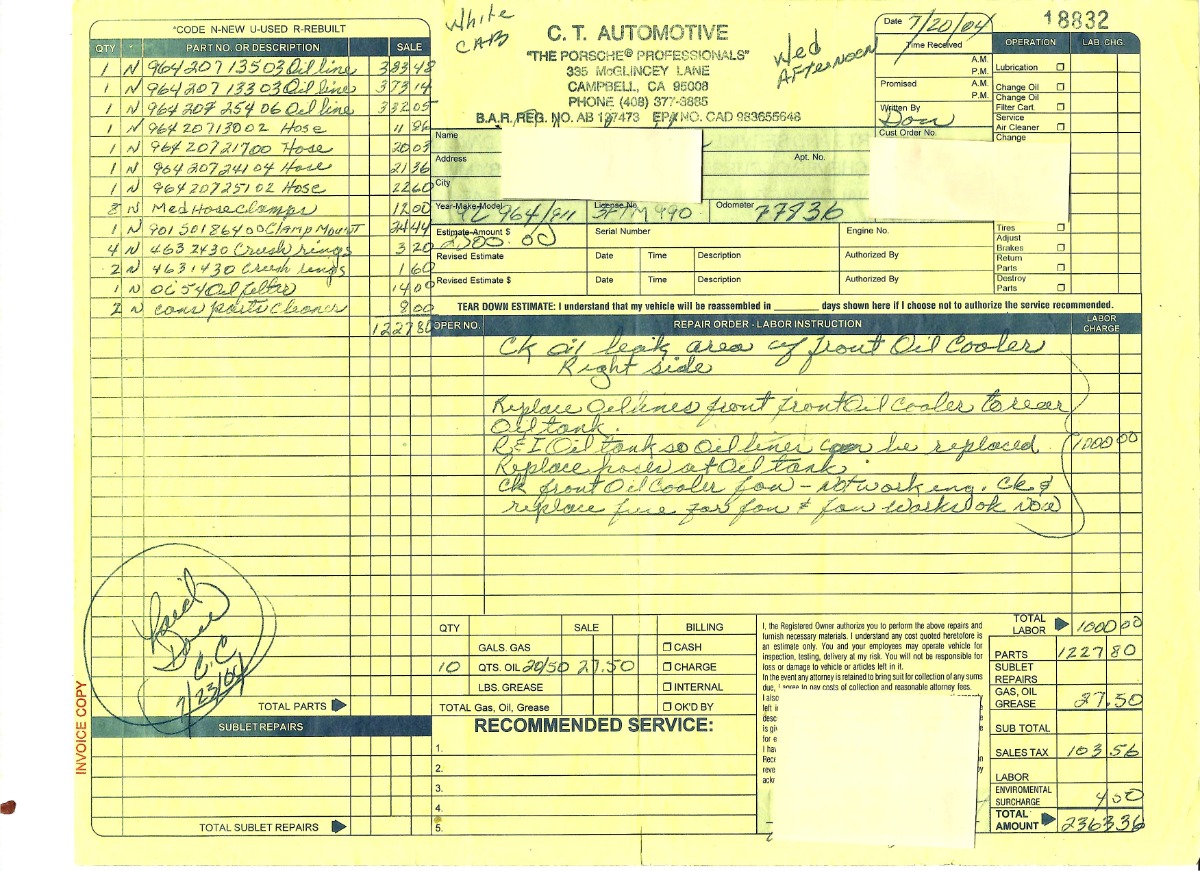 *CODE N-NEW U-USED R-REBUILT
QTY PART NO. OR DESCRIPTION SALE
1 N 964 207 135 03 Oil line 383 48
1 N 964 207 133 03 Oil line 373 14
1 N 964 207 254 06 Oil line 332 05
1 N 964 207 130 02 Hose 11 86
1 N 964 207 217 00 Hose 20 03
1 N 964 207 241 04 Hose 21 36
1 N 964 207 251 02 Hose 22 60
8 N Med Hose Clamps 12 00
1 N 901 501 864 00 Clamp Mount 24 44
4 N 4632430 Crush rings 3 20
2 N 4631430 Crush rings 1 60
1 N 0654 Oil filter 14 00
2 N cans parts cleaner 8 00
1227 80
Paid
Dave
C.C
7/23/04
INVOICE COPY
TOTAL PARTS
SUBLET REPAIRS
TOTAL SUBLET REPAIRS
White
CAB
C. T. AUTOMOTIVE
"THE PORSCHE® PROFESSIONALS"
335 McGLINCEY LANE
CAMPBELL, CA 95008
PHONE (408) 377-3885
B.A.R. REG. NO. AB 127473 EPA NO. CAD 983655648
Wed
AFTERNOON
Date 7/20/04
18832
Time Received
A.M.
P.M.
Promised
A.M.
P.M.
Written By
Don
Cust Order No.
OPERATION LAB. CHG.
Lubrication
Change Oil
Change Oil
Filter Cart.
Service
Air Cleaner
Change
Tires
Adjust
Brakes
Return
Parts
Destroy
Parts
Name
Address Apt. No.
City
Year-Make-Model 92 964/911 License No. 3FTM990 Odometer 77836
Estimate-Amount $ 2500.00 Serial Number Engine No.
Revised Estimate Date Time Description Authorized By
Revised Estimate $ Date Time Description Authorized By
TEAR DOWN ESTIMATE: I understand that my vehicle will be reassembled in ________ days shown here if I choose not to authorize the service recommended.
OPER NO. REPAIR ORDER - LABOR INSTRUCTION LABOR CHARGE
Ck oil leak area of front Oil Cooler
Right side
Replace Oil lines front front Oil Cooler to rear
Oil tank.
R&I Oil tank so Oil lines can be replaced. 1000 00
Replace hoses at Oil tank
Ck front Oil Cooler fan - not working. Ck &
replace fuse for fan & fan works ok now
QTY SALE BILLING
GALS. GAS CASH
10 QTS. OIL 20/50 27.50 CHARGE
LBS. GREASE INTERNAL
TOTAL Gas, Oil, Grease OK'D BY
RECOMMENDED SERVICE:
1.
2.
3.
4.
5.
I, the Registered Owner authorize you to perform the above repairs and
furnish necessary materials. I understand any cost quoted heretofore is
an estimate only. You and your employees may operate vehicle for
inspection, testing, delivery at my risk. You will not be responsible for
loss or damage to vehicle or articles left in it.
In the event any attorney is retained to bring suit for collection of any sums
due, I agree to pay costs of collection and reasonable attorney fees.
I also
left i
desc
is gi
for e
I ha
Rece
reve
ackr
TOTAL LABOR 1000 00
PARTS 1227 80
SUBLET REPAIRS
GAS, OIL GREASE 27.50
SUB TOTAL
SALES TAX 103.56
LABOR
ENVIROMENTAL SURCHARGE 4 50
TOTAL AMOUNT 2363 36